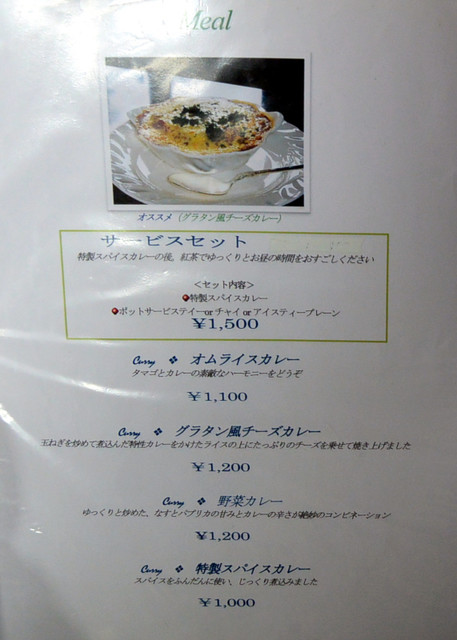 Meal
オススメ（グラタン風チーズカレー）
サービスセット
特製スパイスカレーの後，紅茶でゆっくりとお昼の時間をおすごしください
＜セット内容＞
特製スパイスカレー
ポットサービスティーor チャイ or アイスティープレーン
￥1,500
Curry ❖ オムライスカレー
タマゴとカレーの素敵なハーモニーをどうぞ
￥1,100
Curry ❖ グラタン風チーズカレー
玉ねぎを炒めて煮込んだ特性カレーをかけたライスの上にたっぷりのチーズを乗せて焼き上げました
￥1,200
Curry ❖ 野菜カレー
ゆっくりと炒めた、なすとパプリカの甘みとカレーの辛さが絶妙のコンビネーション
￥1,200
Curry ❖ 特製スパイスカレー
スパイスをふんだんに使い、じっくり煮込みました
￥1,000